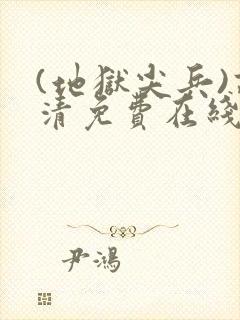 (地獄尖兵)
清免費在綫
尹鴻